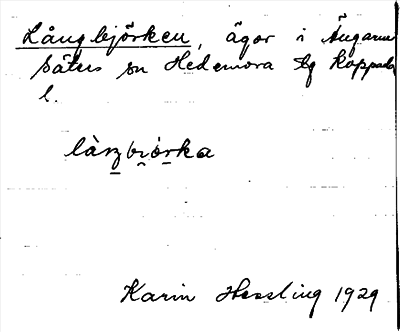 Långbjörken, ägor i Ängarna
säters sn Hedemora tg Kopparb
l.
làŋbjörka
Karin Hessling 1929